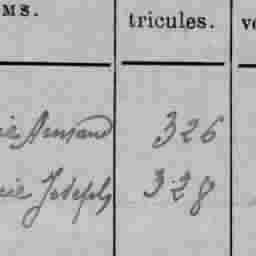 MS. tricules. v
ie Armand 326
ie Joseph 328